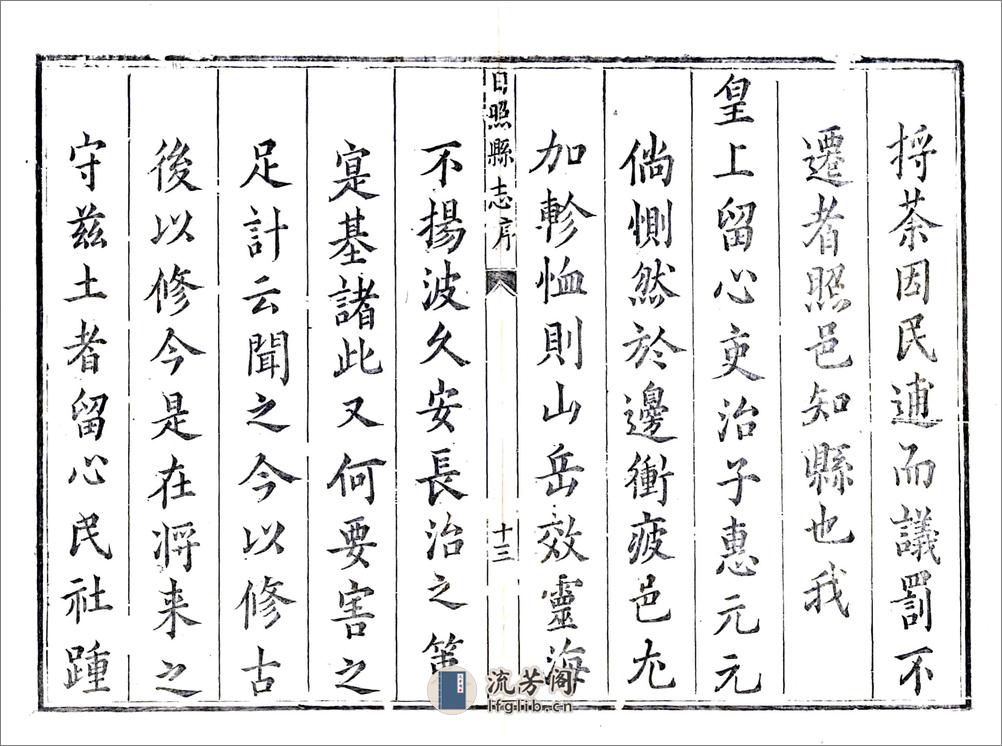 捋荼因民逋而議罰不
遷者照邑知縣也我
皇上留心吏治子惠元元
倘惻然於邊衝疲邑尤
加軫恤則山岳效靈海
日照縣志序
十三
不揚波久安長治之策
寔基諸此又何要害之
足計云聞之今以修古
後以修今是在将来之
守兹土者留心民社踵
流芳阁
lfglib.cn